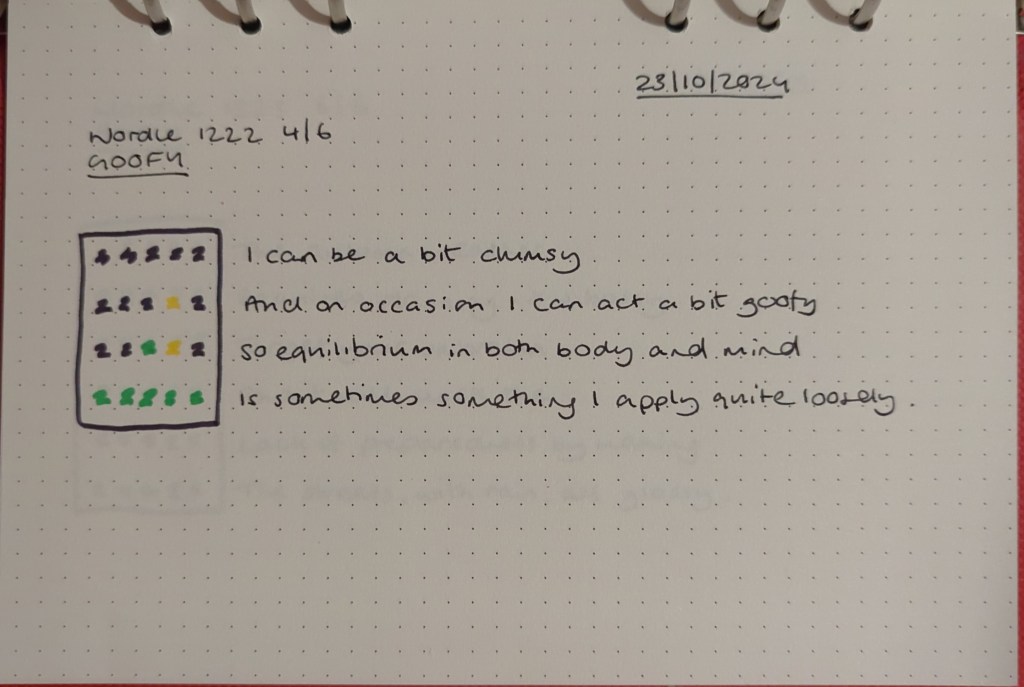 23/10/2024
Wordle 1222 4/6
GOOFY
I can be a bit clumsy
And on occasion I can act a bit goofy
so equilibrium in both body and mind
is sometimes something I apply quite loosely.